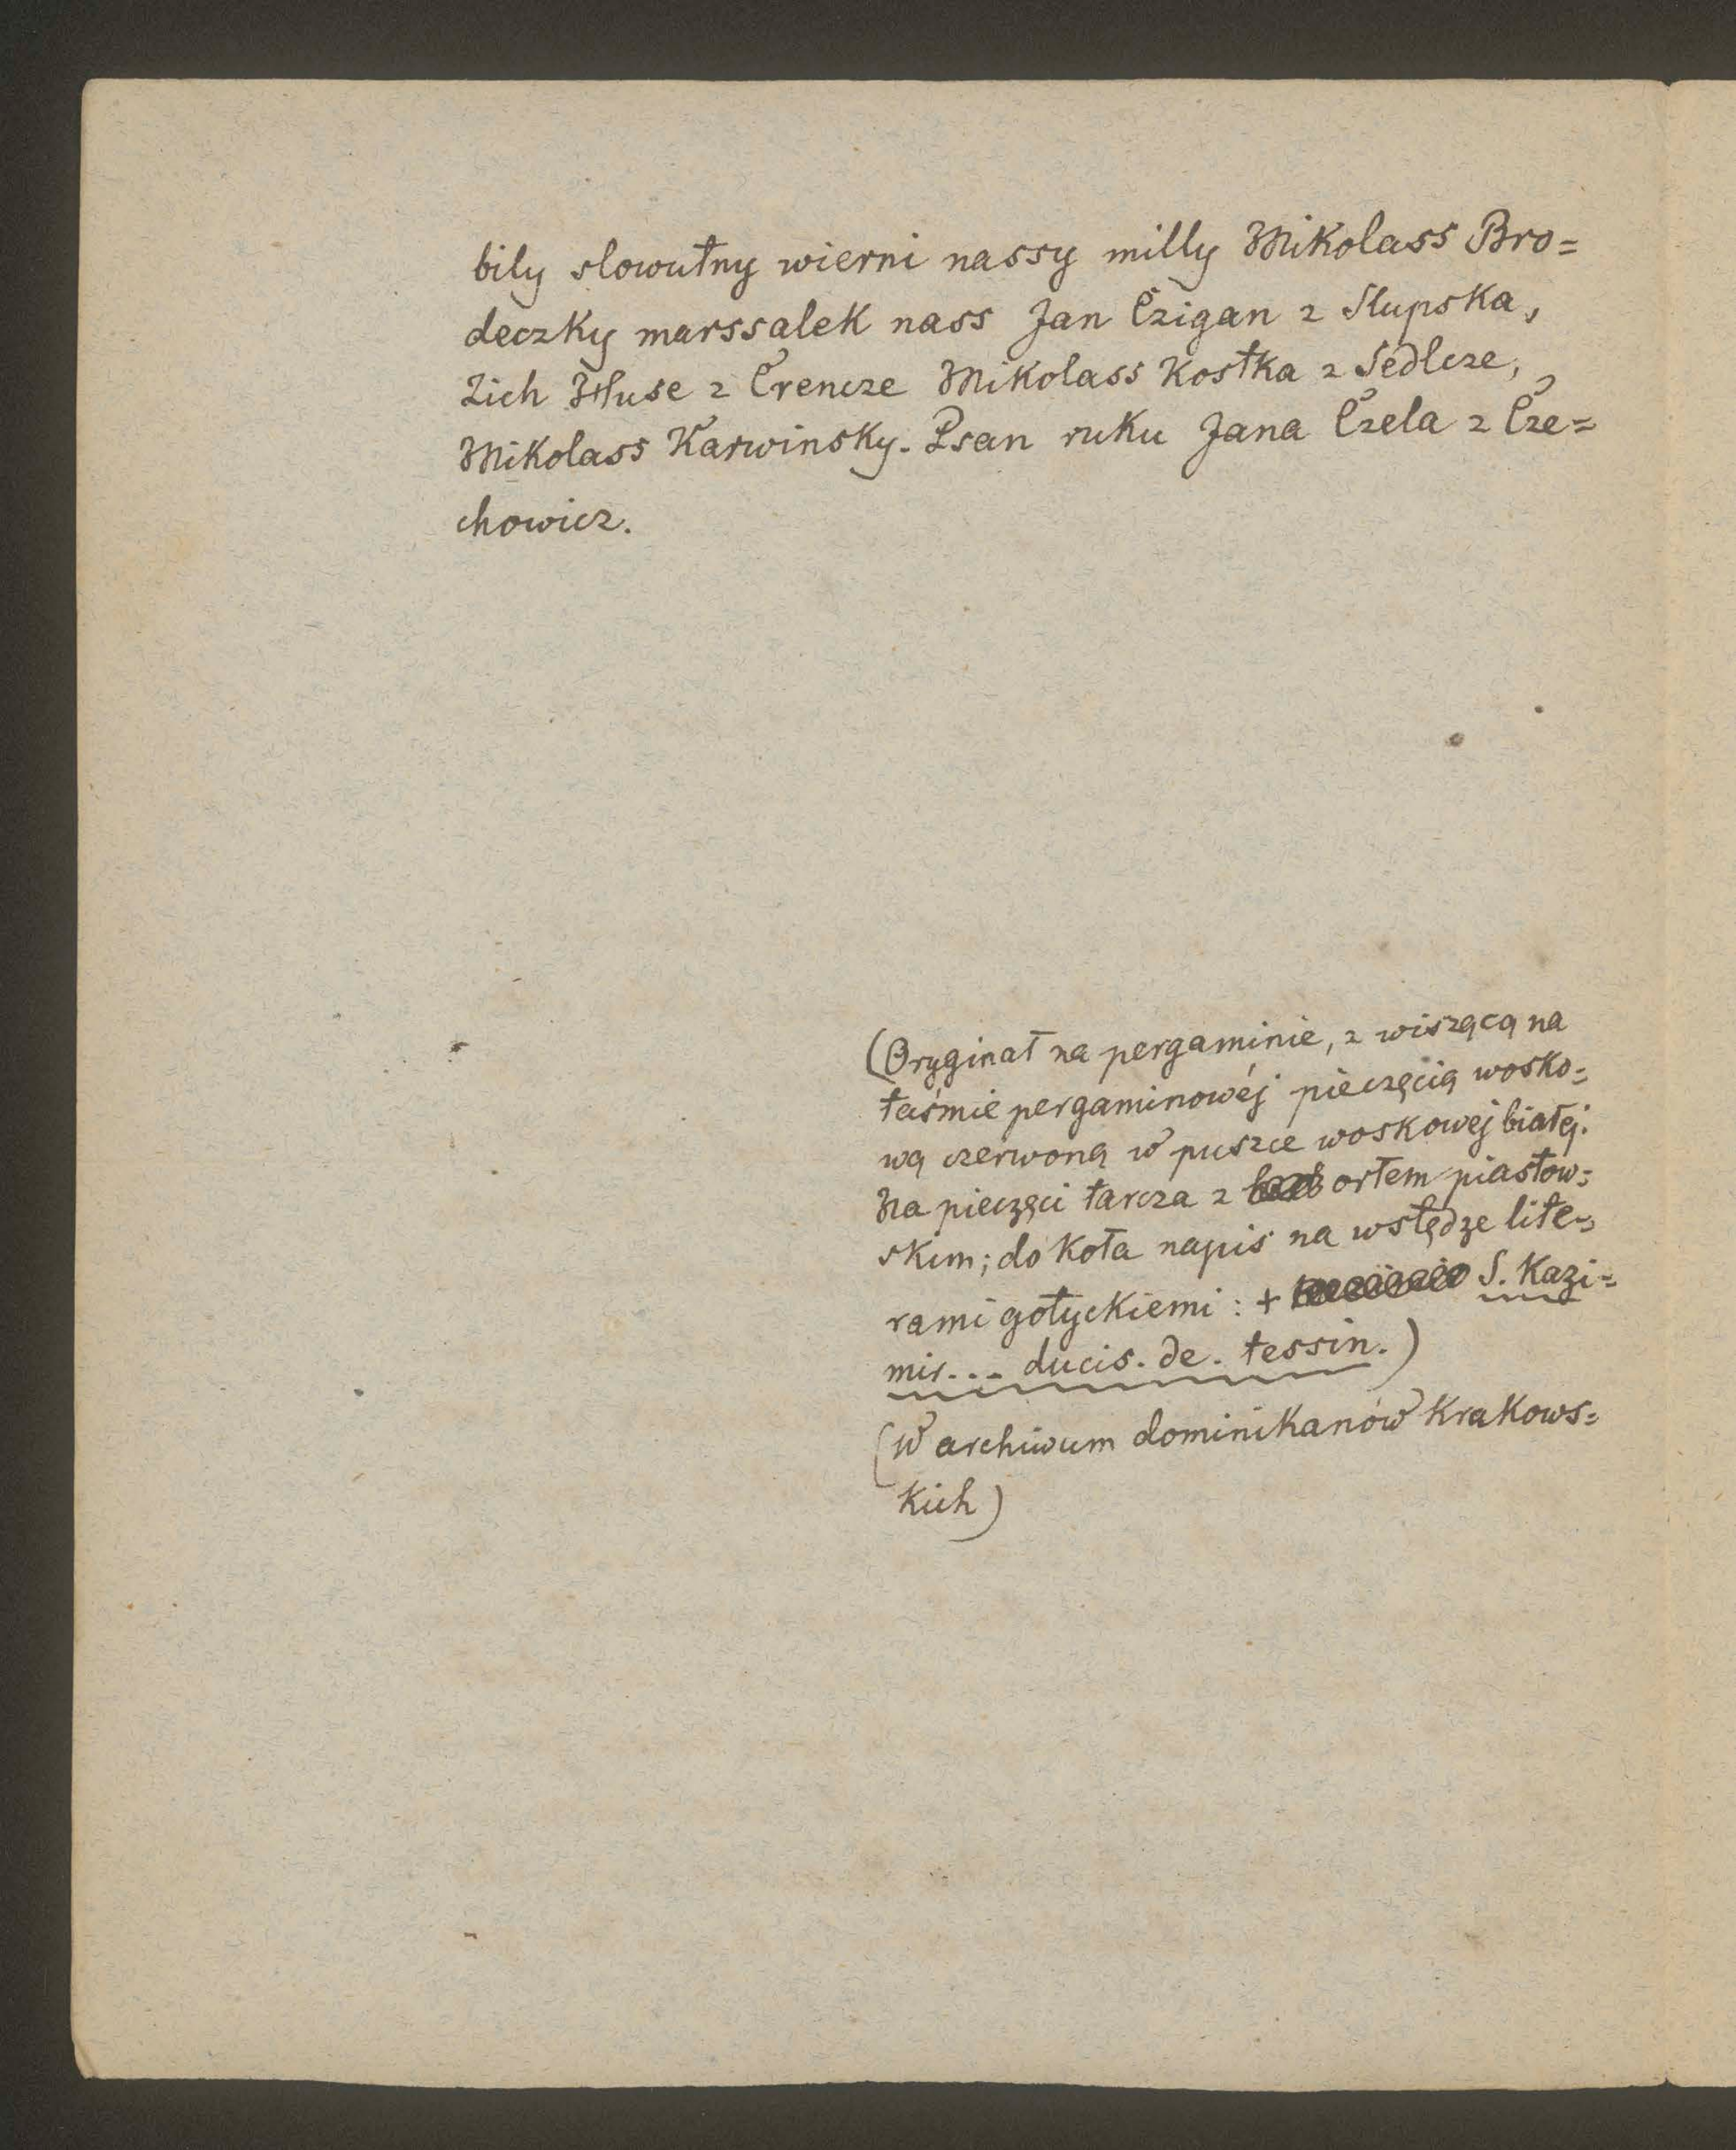 bily slowutny wierni nassy milly Mikolass Bro=
deczky marssalek nass Jan Czigan z Slupska,
Zich Hluse z Crencze Mikolass Kostka z Sedlcze,
Mikolass Karwinsky. Psan ruku Jana Czela z Cze=
chowicz.
(Oryginał na pergaminie, z wiszącą na
taśmie pergaminowéj pieczęcią wosko=
wą czerwoną w puszce woskowéj białej.
Na pieczęci tarcza z orłem piastow=
skim; do koła napis na wstędze lite=
rami gotyckiemi: + S. Kazi=
mir... ducis. de. tessin.)
(W archiwum dominikanów krakows=
kich)